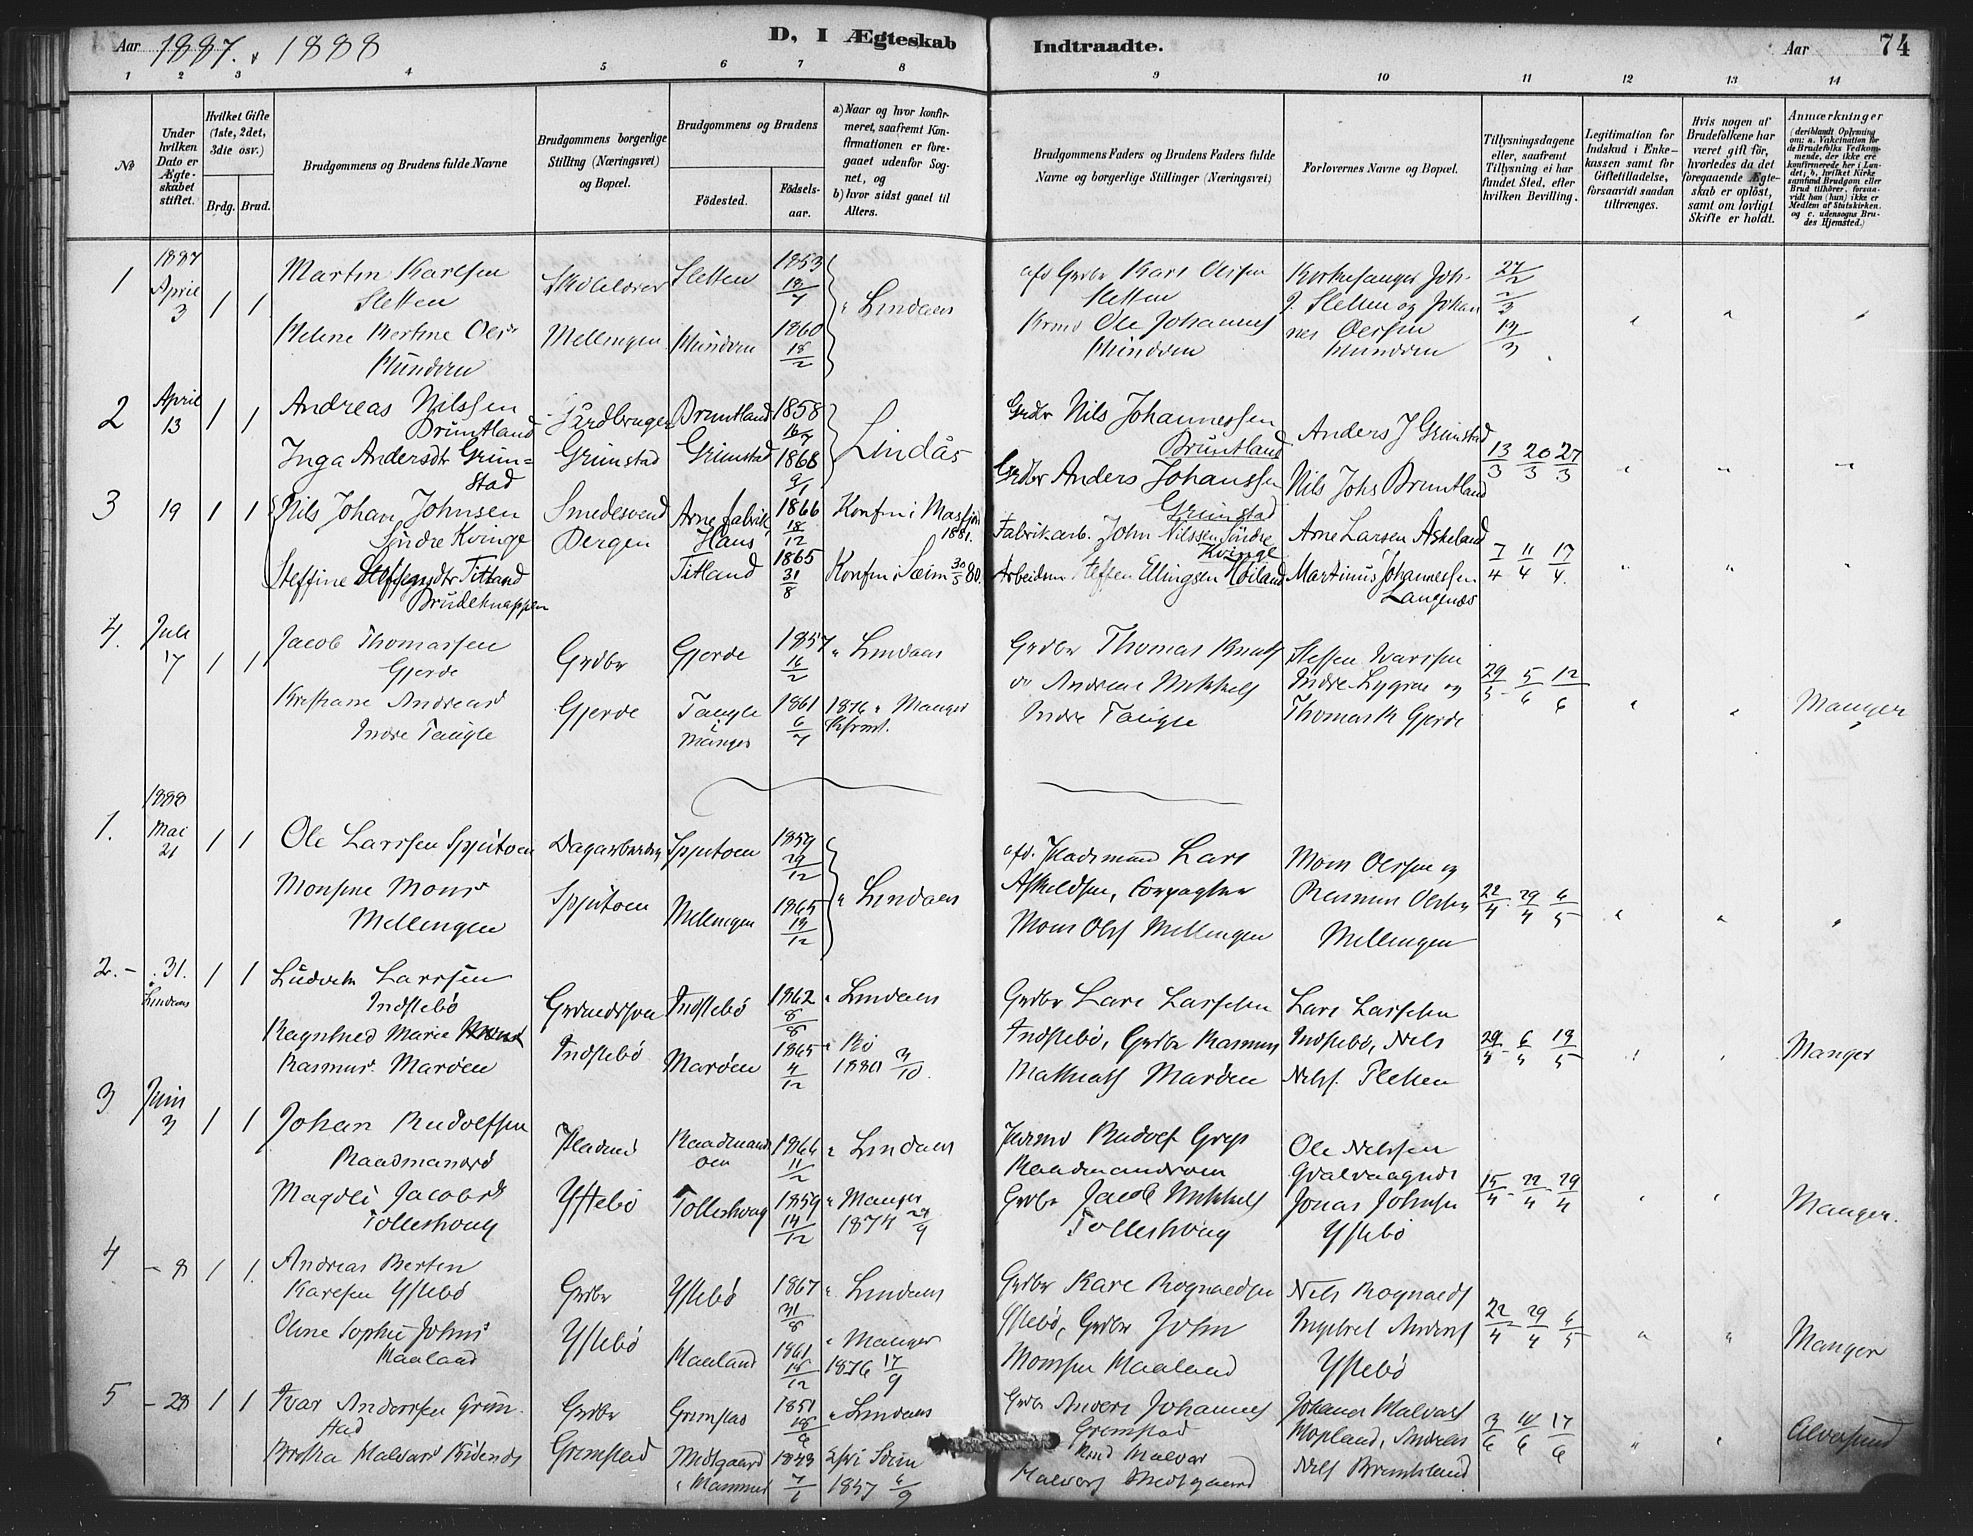 Aar 1887. & 1888
D, I Ægteskab Indtraadte.
Aar 74
1 2 3 4 5 6 7 8 9 10 11 12 13 14
No
Under hvilken Dato er Ægteskabet stiftet.
Hvilket Gifte (1ste, 2det, 3die osv.)
Brdg. Brud.
Brudgommens og Brudens fulde Navne
Brudgommens borgerlige Stilling (Næringsvei) og Bopæl.
Brudgommens og Brudens
Fødested.
Fødsels-aar.
a) Naar og hvor konfirmeret, saafremt Konfirmationen er foregaaet udenfor Sognet, og
b) hvor sidst gaaet til Alters.
Brudgommens Faders og Brudens Faders fulde Navne og borgerlige Stillinger (Næringsvei)
Forlovernes Navne og Bopæl.
Tillysningsdagene eller, saafremt Tillysning ei har fundet Sted, efter hvilken Bevilling.
Legitimation for Indskud i Enkekassen samt for Giftetilladelse, forsaavidt saadan tiltrænges.
Hvis nogen af Brudefolkene har været gift før, hvorledes da det foregaaende Ægteskab er opløst, samt om lovligt Skifte er holdt.
Anmærkninger
(deriblandt Oplysning om: a. Vakcination for de Brudefolks Vedkommende, der ikke ere konfirmerede her i Landet; b. hvilket Kirkesamfund Brudgom eller Brud tilhører, forsaavidt han (hun) ikke er Medlem af Statskirken, og c. udensogns Brudes Hjemsted.)
1 1887 April 3 1 1
Martin Karlsen Sletten
Skolelærer Sletten 1853 18/7
Lindaas
Helene Bertine Ols Mundren
Mellingen Mundren 1860 18/2
Karl Olssen Sletten
Kirkesanger Joh. J. Sletten og Johannes Olssen Mundren
27/2 2/3 13/3
Ole Johannes Mundren
2 April 13 1 1
Andreas Nilssen Bruntland
Gardbruger Bruntland 1858 16/7
Inga Andersdtr Grimstad
Grimstad Grimstad 1868 9/1
Lindås
Grdbr Nils Johannessen Bruntland
Anders J Grimstad
Grdbr Anders Johanssen Grimstad
Nils Johs Bruntland
13/3 20/3 27/3
3 19 1 1
Nils Johan Johnsen Søndre Kvinge
Smedesvend Bergen
Arne fabrik Haus 1866 18/12
Konfm i Masfjor 1881.
Steffine Steffensdtr Titland Brudeknappen
Titland 1865 31/8
Konfm i Sæim 30/5 80.
Fabrikarb. John Nilssen Søndre Kvinge
Arne Larsen Askeland
Arbeidsm Steffen Ellingsen Høiland
Martinus Johannessen Langenæs
7/4 11/4 17/4.
4. Juli 17 1 1
Jacob Thomassen Gjerde
Grdbr Gjerde 1857 16/2
Lindaas
Kristiane Andreasd Indre Taugle
Gjerde Taugle Manger 1861 6/7
1876 Manger
Grdbr Thomas Knuts
Steffen Ivarsen Indre Lygren og Thomas K Gjerde
Andreas Mikkels Indre Taugle
29/5 5/6 12/6
Manger
1. 1888 Mai 21 1 1
Ole Larssen Spjutøen
Dagarbeider Spjutøen 1859 29/12
Monsine Mons Mellingen
Spjutøen Mellingen 1865 13/12
Lindaas
afd. Pladsmand Lars Askeldsen
Mons Olsen Mellingen
Mons Olssen og Rasmus Olssen Mellingen
22/4 29/4 6/5
2. 31. Lindaas 1 1
Ludvik Larssen Indstebø
Indstebø 1862 8/8
Lindaas
Ragnhild Marie Rasmus. Marøen
Indstebø Marøen 1865 4/12
Bø 1880 3/10.
Grdbr Lars Larssen Indstebø, Grdbr Rasmus Mathias Marøen
Lars Larssen Indstebø, Nels Nelss. Fletten
29/4 6/5 13/5
Manger
3 Juni 3 1 1
Johan Rudolfsen Raadmansø
Raadmandsøen 1866 11/2
Lindaas
Magdli Jacobsd Tolleshaug
Ystebø Tolleshaug 1859 14/12
Manger 1874 29/9
Rudolf Raadmandsøen
Grdbr Jacob Mikkels Tolleshaug
Ole Nelssen Qvalvaagnes
Jonas Johnsen Ystebø
15/4 22/4 29/4
Manger.
4 8 1 1
Andreas Berten Karlsen Ystebø
Grdbr Ystebø 1867 31/8
Lindaas
Oline Sophie Johns Maaland
Ystebø Maaland 1861 18/12
Manger 1876 17/9
Grdbr Karl Rognaldsen Ystebø, Grdbr John Monssen Maaland
Nels Rognalds
Ingebret Anders Ystebø
22/4 29/4 6/5
Manger
5 28 1 1
Ivar Anderssen Grimstad
Grdbr Grimstad 1851 18/6
Lindaas
Grimstad Midtgaard Mammen 1843 7/1
Seim 1857 6/9
Grdbr Anders Johannes Grimstad
Halvor Midtgaard
Johannes Halvors Hopland, Andreas Nelss Bruntland
3/6 10/6 17/6
Alversund